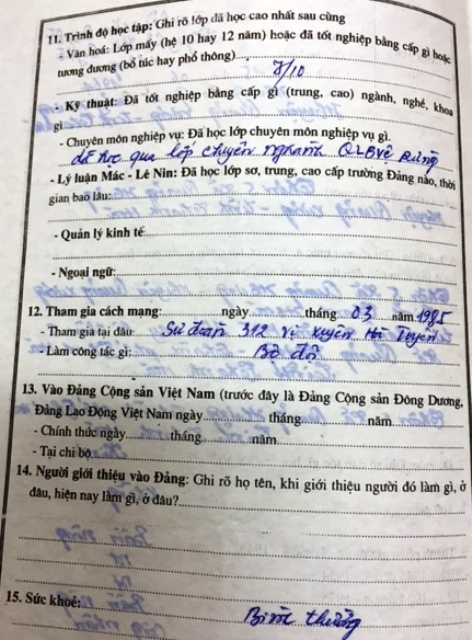 11. Trình độ học tập: Ghi rõ lớp đã học cao nhất sau cùng
- Văn hoá: Lớp mấy (hệ 10 hay 12 năm) hoặc đã tốt nghiệp bằng cấp gì hoặc
tương đương (bổ túc hay phổ thông)
7/10
- Kỹ thuật: Đã tốt nghiệp bằng cấp gì (trung, cao) ngành, nghề, khoa
gì
- Chuyên môn nghiệp vụ: Đã học lớp chuyên môn nghiệp vụ gì.
đã học qua lớp chuyên nghành QLBVệ Rừng
- Lý luận Mác - Lê Nin: Đã học lớp sơ, trung, cao cấp trường Đảng nào, thời
gian bao lâu:
- Quản lý kinh tế
- Ngoại ngữ:
12. Tham gia cách mạng: ngày tháng 03 năm 1985
- Tham gia tại đâu: Sư đoàn 312 Vị Xuyên Hà Tuyên
- Làm công tác gì: Bộ đội
13. Vào Đảng Cộng sản Việt Nam (trước đây là Đảng Cộng sản Đông Dương,
Đảng Lao Động Việt Nam ngày tháng năm
- Chính thức ngày tháng năm
- Tại chi bộ
14. Người giới thiệu vào Đảng: Ghi rõ họ tên, khi giới thiệu người đó làm gì, ở
đâu, hiện nay làm gì, ở đâu?
15. Sức khoẻ: Bình thường